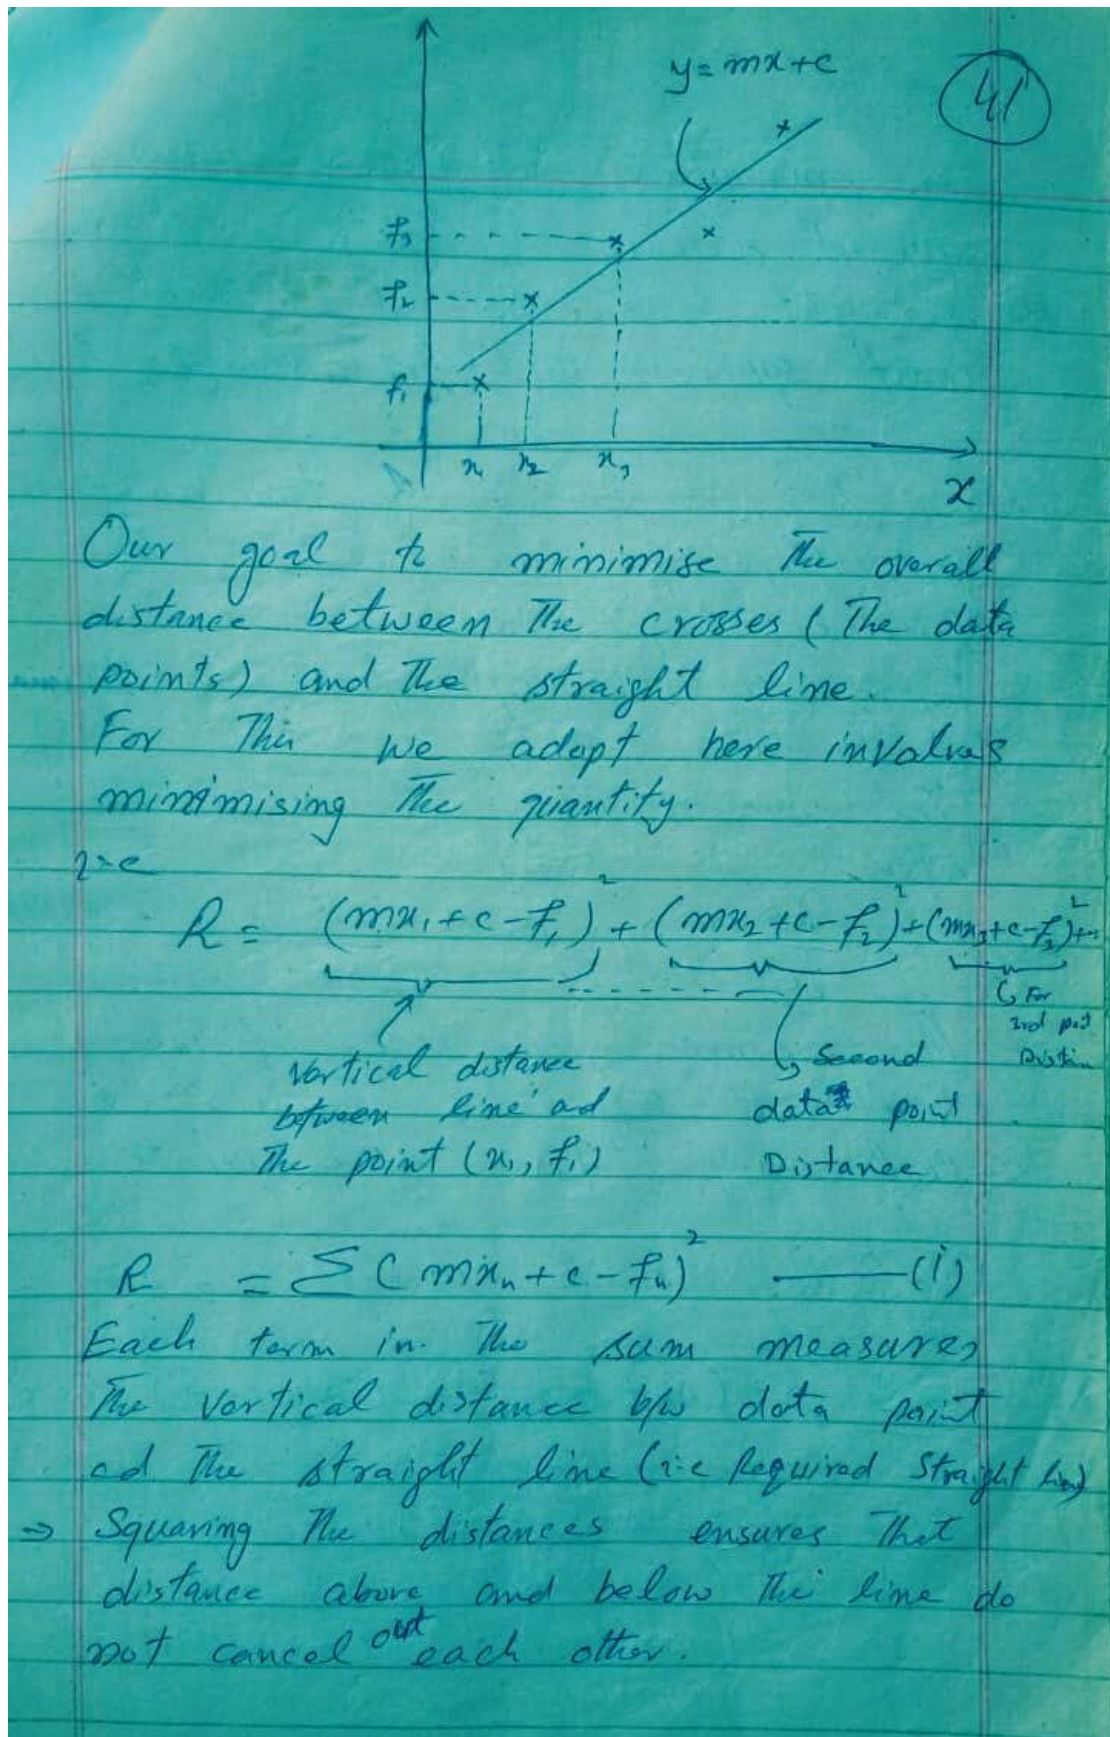 y = mx + c
41
f₃
f₂
f₁
x₁ x₂ x₃
x
Our goal to minimise The overall
distance between The crosses (The data
points) and The straight line.
For This we adopt here involves
minimising The quantity.
i.e
R = (mx₁ + c - f₁)² + (mx₂ + c - f₂)² + (mx₃ + c - f₃)² + --
For
3rd
Vertical distance
between line ad
The point (x₁, f₁)
Second
data point
Distance
R = Σ ( mxₙ + c - fₙ)² —— (i)
Each term in The sum measures
The vertical distance b/w data point
ad The straight line (i-e Required Straight line)
⇒ Squaring The distances ensures That
distance above and below The line do
not cancel out each other.